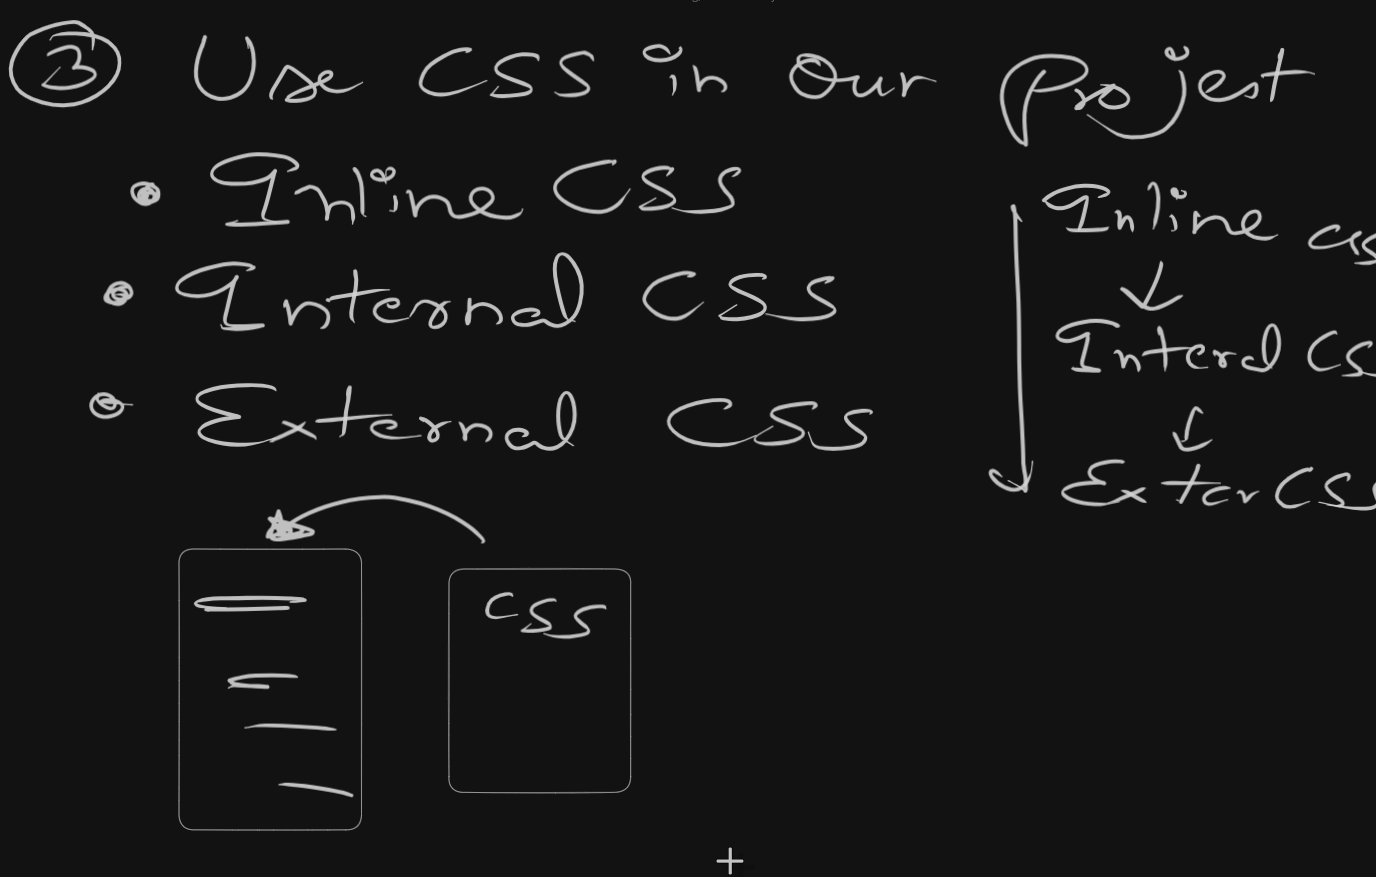 3 Use CSS in Our Projest
• Inline CSS
• Internal CSS
• External CSS
Inline css
↓
Interal CS
↓
Exter CSS
CSS